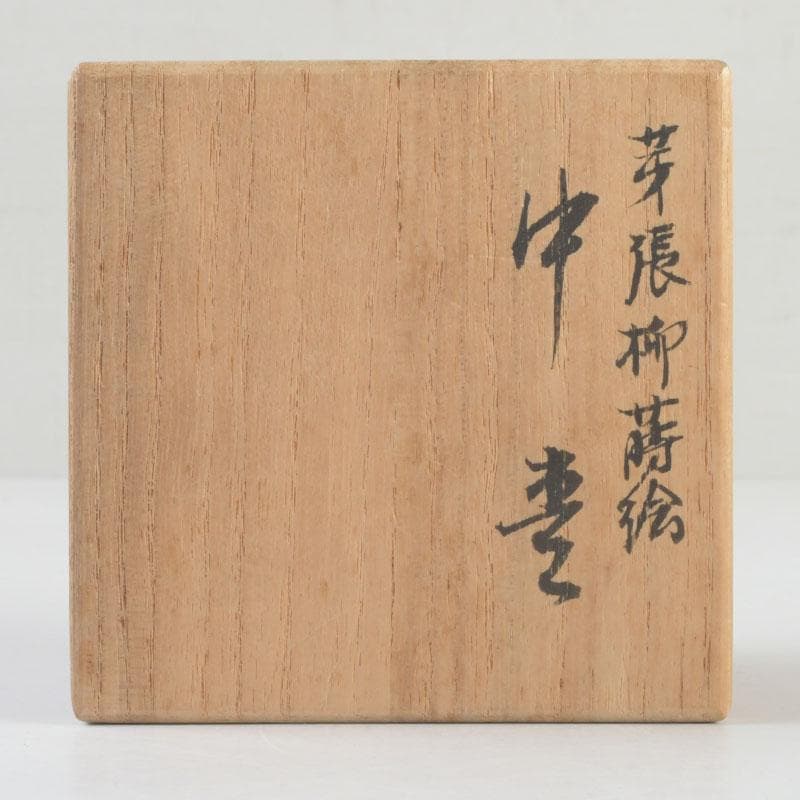 芽張柳蒔絵
中棗